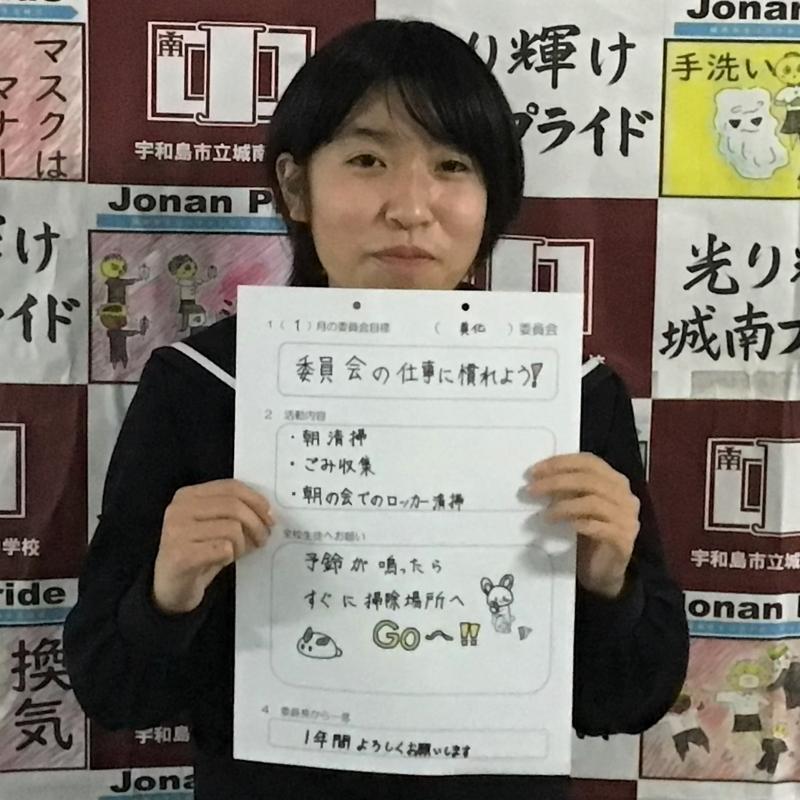 Jonan
マスクは
マナー
南
宇和島市立城南
り輝け
プライド
手洗い
Jonan P
け
ライド
光り
城南プ
1 ( 1 ) 月の委員会目標 ( 美化 ) 委員会
委員会の仕事に慣れよう!
2 活動内容
・朝清掃
・ごみ収集
・朝の会でのロッカー清掃
全校生徒へお願い
予鈴が鳴ったら
すぐに掃除場所へ
Goへ!!
4 委員長から一言
1年間よろしくお願いします
南
宇和島市立城
学校
ride
Jonan
換気
Jona